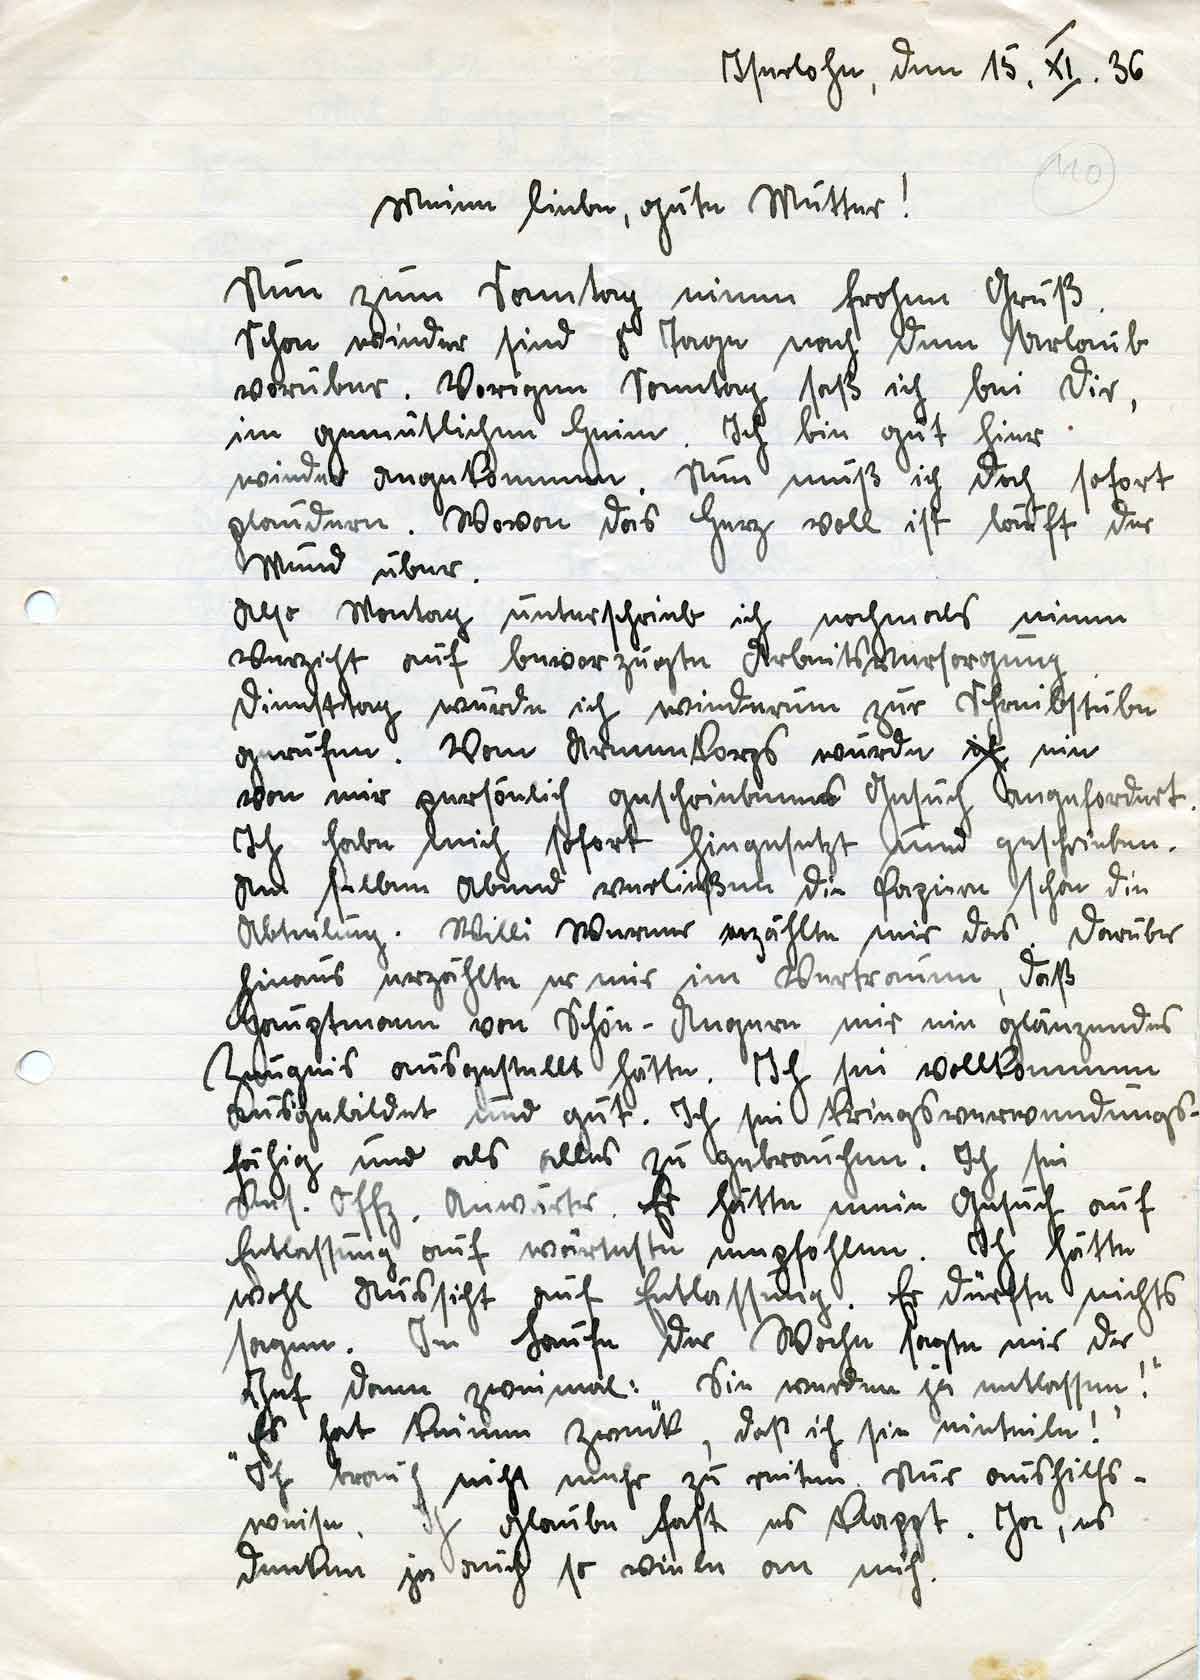 Iserlohn, den 15. XI. 36
110
Meine liebe, gute Mutter!
Nun zum Sonntag einen frohen Gruß.
Schon wieder sind 8 Tage nach dem Urlaub
vorüber. Vorigen Sonntag saß ich bei Dir,
im gemütlichen Heim. Ich bin gut hier
wieder angekommen. Nun muß ich doch sofort
plaudern. Wovon das Herz voll ist läuft der
Mund über.
Also Montag unterschrieb ich nochmals einen
Verzicht auf bevorzugte Arbeitsversorgung.
Diensttag wurde ich wiederum zur Schreibstube
gerufen. Vom Armeekorps wurde ich ein
von mir persönlich geschriebenes Gesuch angefordert.
Ich habe mich sofort hingesetzt und geschrieben.
Am selben Abend verließen die Papiere schon die
Abteilung. Willi Werner erzählte mir das. Darüber
hinaus erzählte er mir im Vertrauen, daß
Hauptmann von Schön-Angern mir ein glänzendes
Zeugnis ausgestellt hätte. Ich sei vollkommen
ausgebildet und gut. Ich sei kriegsverwendungs-
fähig und als alles zu gebrauchen. Ich sei
Res. Offz. Anwärter. Er hätte mein Gesuch auf
Entlassung auf wärmste empfohlen. Ich hätte
wohl Aussicht auf Entlassung. Er dürfte nichts
sagen. Im Laufe der Woche sagte mir der
Chef dann zweimal: Sie werden ja entlassen!"
"Es hat keinen Zweck, daß ich sie einteile!"
Ich brauch nicht mehr zu reiten. Nur aushilfs-
weise. Ich glaube fast es klappt. Ja, es
denken ja auch so viele an mich.